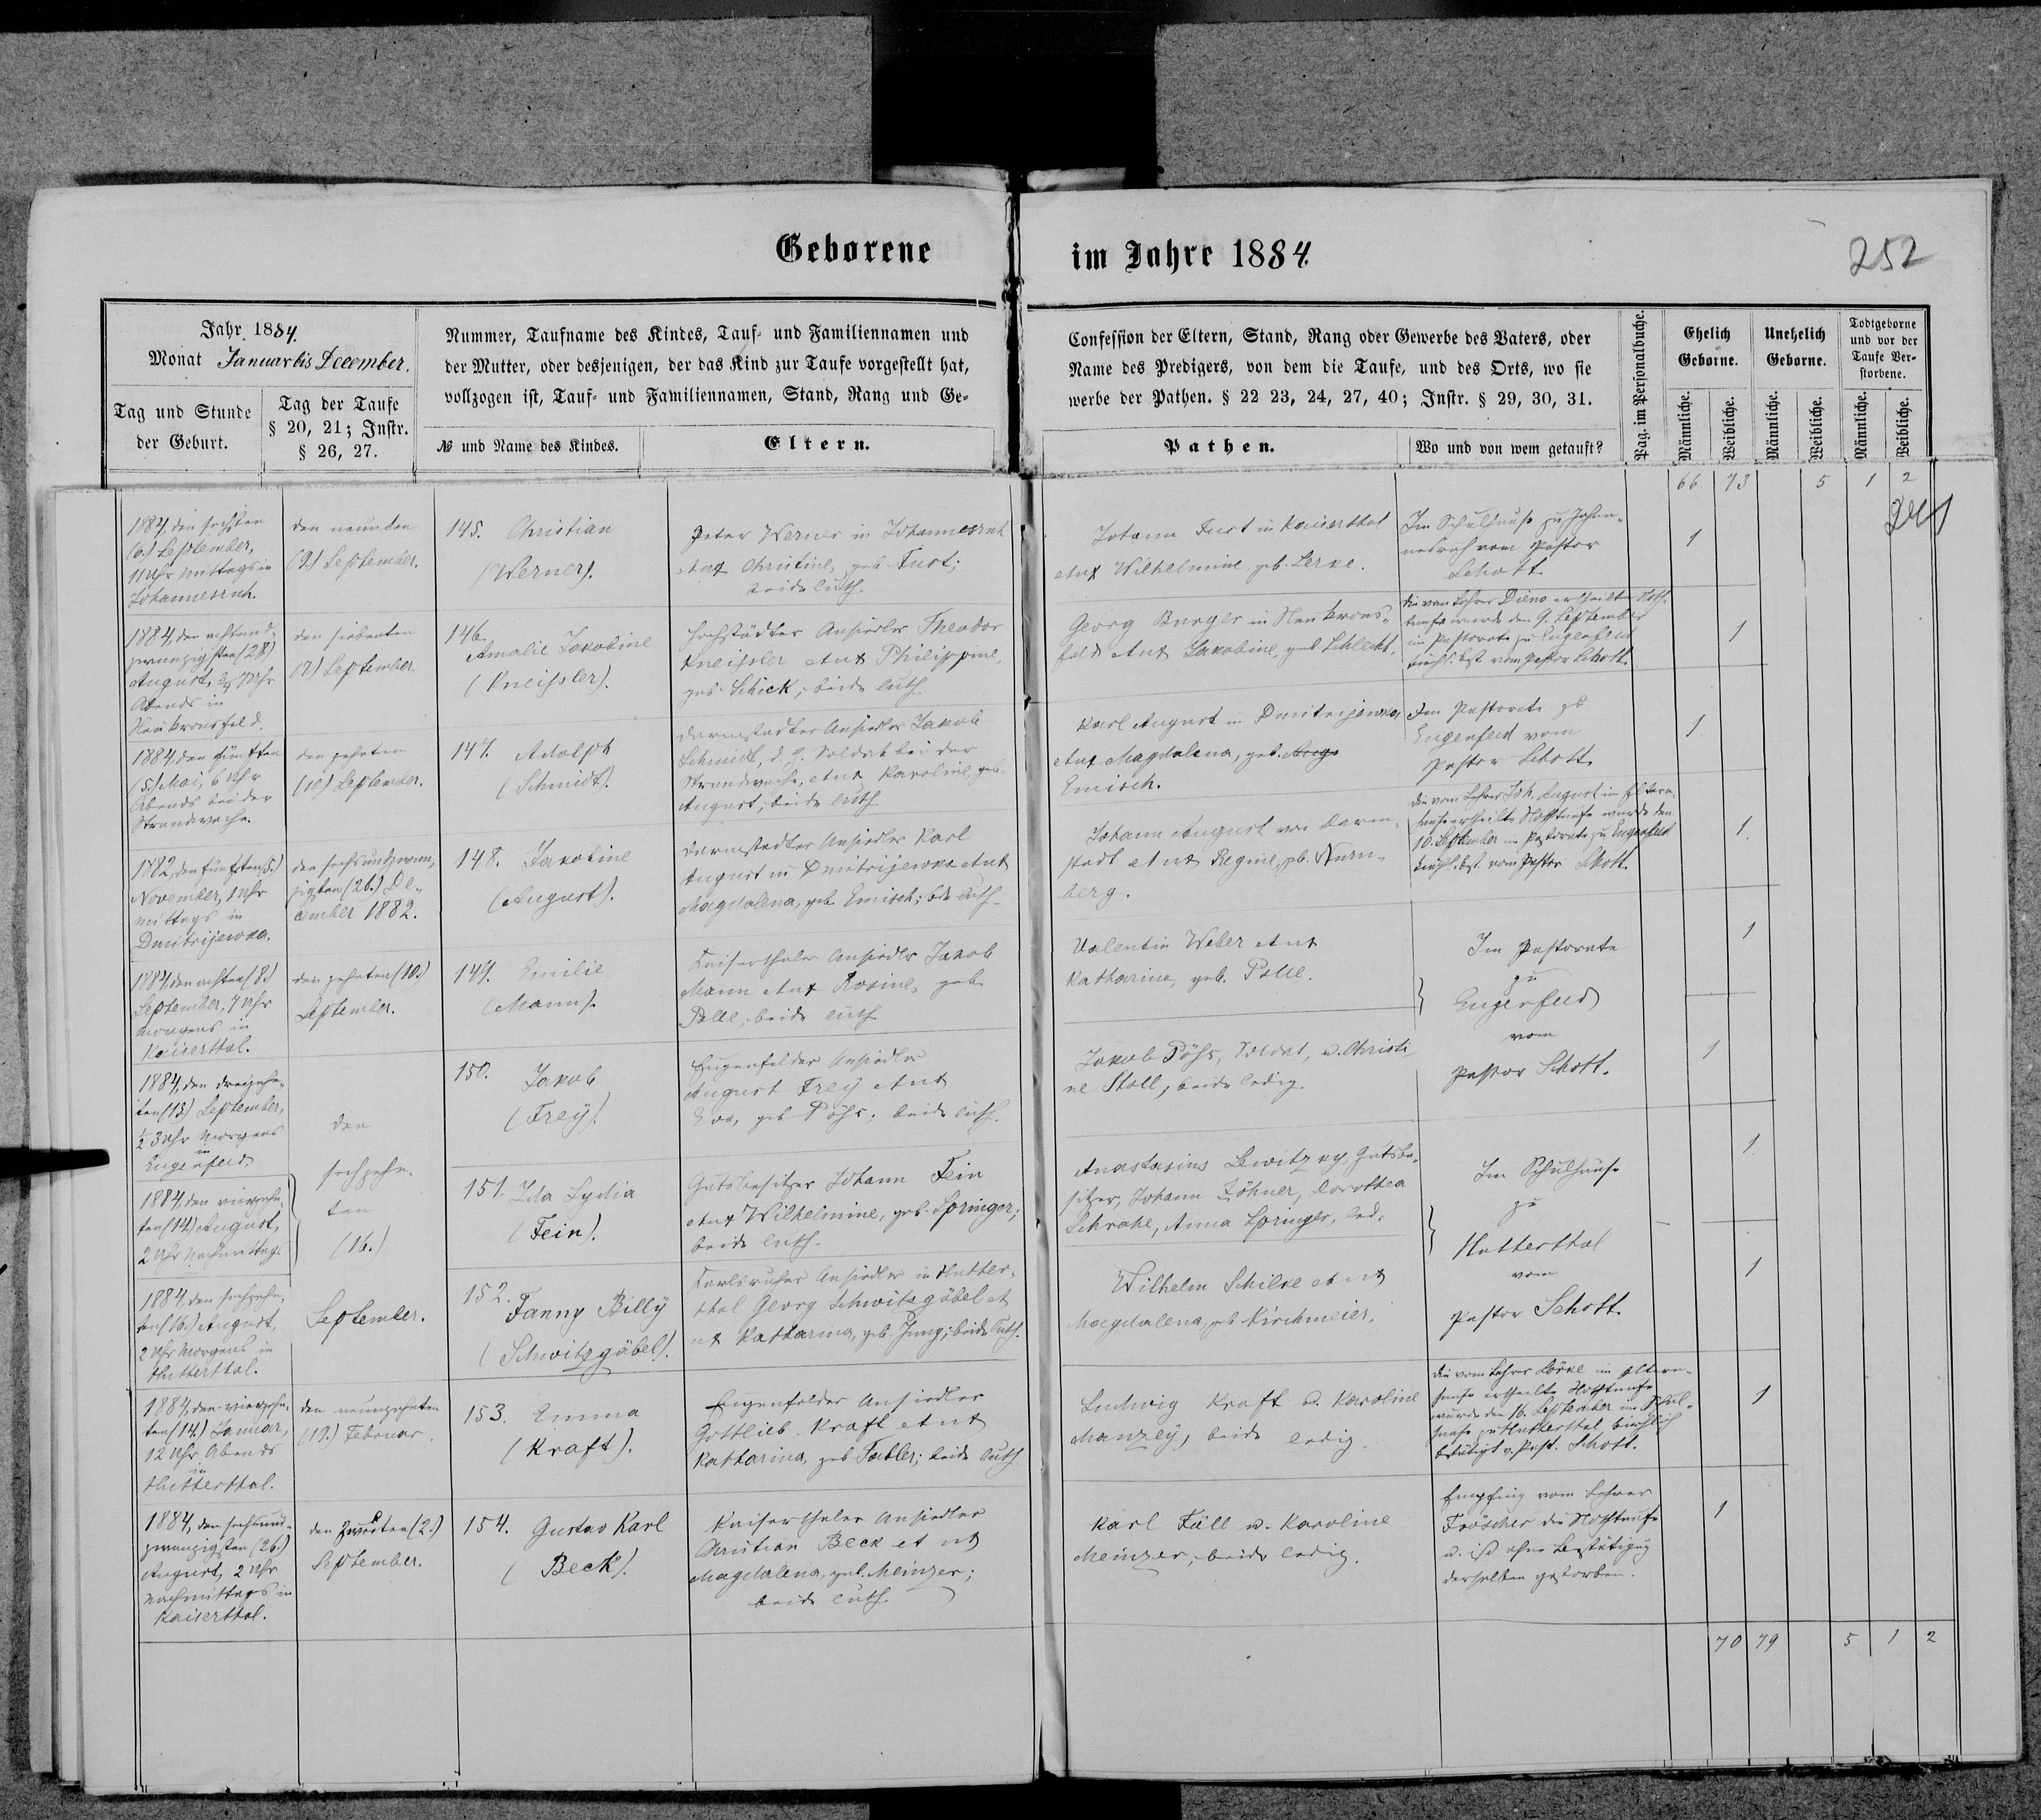 Geborene im Jahre 1884.
252
Jahr 1884.
Monat Januar bis December.
Tag und Stunde
der Geburt.
Tag der Taufe
§ 20, 21; Instr.
§ 26, 27.
Nummer, Taufname des Kindes, Tauf- und Familiennamen und
der Mutter, oder desjenigen, der das Kind zur Taufe vorgestellt hat,
vollzogen ist, Tauf- und Familiennamen, Stand, Rang und Ge-
№ und Name des Kindes.
Eltern.
Confession der Eltern, Stand, Rang oder Gewerbe des Vaters, oder
Name des Predigers, von dem die Taufe, und des Orts, wo sie
werbe der Pathen. § 22 23, 24, 27, 40; Instr. § 29, 30, 31.
Pathen.
Wo und von wem getauft?
Pag. im Personalbuche.
Ehelich
Geborne.
Unehelich
Geborne.
Todtgeborne
und vor der
Taufe Ver-
storbene.
Männliche.
Weibliche.
Männliche.
Weibliche.
Männliche.
Weibliche.
66 73 5 1 2
1884, den sechsten
(6.) September,
11 Uhr Mittags in
Johannesruh.
den neunten
(9.) September.
145. Christian
(Werner).
Peter Werner in Johannesruh
et ux Christine, geb. Fust;
beide luth.
Johann Fust in Kaiserthal
et ux Wilhelmine, geb. Lerke.
Im Schulhause zu Johan-
nesruh vom Pastor
Schott
1
1884, den achtund-
zwanzigsten (28)
August, 7 Uhr
Abends in
Neukronsfeld.
den siebenten
(7) September.
146.
Amalie Jakobine
(Kneissler).
Hochstädter Ansiedler Theodor
Kneissler et ux Philippine,
geb. Schick, beide luth.
Georg Burger in Neukrons-
feld et ux Jakobine, geb. Schlecht.
die vom Lehrer Dieno ertheilte Noth-
taufe wurde den 9. September
im Pastorate zu Eugenfeld
kirchl. bst. vom Pastor Schott.
1
1884 den fünften
(5.) Mai, 6 Uhr
Abends bei der
Strandwache.
den zehnten
(10) September.
147. Adolph
(Schmidt).
Darmstadter Ansiedler Jakob
Schmidt, d. z. Soldat bei der
Strandwache, et ux Karoline, geb.
August; beide luth.
Karl August in Dmitrijewka
et ux Magdalena, geb.
Emisch.
Im Pastorate zu
Eugenfeld vom
Pastor Schott
1
1882, den fünften (5.)
November, 1 Uhr
Mittags in
Dmitrijewka.
den sechsundzwan-
zigsten (26.) De-
cember 1882.
148. Jakobine
(August).
Darmstadter Ansiedler Karl
August in Dmitrijewka et ux
Magdalena, geb. Emisch; bde luth.
Johann August von Darm-
stadt et ux Regine, geb. Nurn-
berg.
die vom Lehrer Joh. August im Eltern-
hause ertheilte Nothtaufe wurde den
10. September im Pastorate zu Eugenfeld
kirchl. bst. vom Pastor Schott.
1
1884, den achten (8.)
September, 7 Uhr
Morgens in
Kaiserthal.
den zehnten (10.)
September.
149. Emilie
(Mann).
Kaiserthaler Ansiedler Jakob
Mann et ux Rosine, geb.
Polle, beide luth.
Valentin Weber et ux
Katharina, geb. Polle.
Im Pastorate
zu
Eugenfeld
vom
Pastor Schott.
1
1884, den dreizehn-
ten (13) September,
½ 3 Uhr Morgens
in
Eugenfeld.
den
sechzehn-
ten
(16.)
September.
150. Jakob
(Frey).
Eugenfelder Ansiedler
August Frey et ux
Eva, geb Pöhs; beide luth.
Jakob Pöhs, Soldat, u. Christi
ne Stoll, beide ledig.
1
1884, den vierzehn-
ten (14.) August,
2 Uhr Nachmittags
151. Ida Lydia
(Fein).
Gutsbesitzer Johann Fein
et ux Wilhelmine, geb. Springer;
beide luth.
Anastasius Lewitzky, Gutsbe-
sitzer, Johann Zöhner, Dorothea
Schrahe, Anna Springer, led.
Im Schulhause
zu
Hutterthal
vom
Pastor Schott.
1
1884, den sechzehn-
ten (16.) August,
2 Uhr Morgens in
Hutterthal.
152.
Fanny Billy
(Schwitzgäbel).
Karlsruher Ansiedler in Hutter-
thal Georg Schwitzgöbel et
ux Katharina, geb. Jung; beide luth.
Wilhelm Schilke et ux
Magdalena, geb Kirchmeier.
1
1884, den vierzehn-
ten (14.) Januar,
12 Uhr Abends
in
Hutterthal.
den neunzehnten
(19.) Februar.
153. Emma
(Kraft).
Eugenfelder Ansiedler
Gottlieb Kraft et ux
Katharina, geb Tabler; beide luth
Ludwig Kraft u. Karoline
Manzey, beide ledig.
die vom Lehrer Lörke im Eltern-
hause ertheilte Nothtaufe
wurde den 16. September im Schul-
hause zu Hutterthal kirchlich
bstätigt v. Past. Schott.
1
1884, den sechsund-
zwanzigsten (26.)
August, 2 Uhr
Nachmittags in
Kaiserthal.
den zweiten (2.)
September.
154. Gustav Karl
(Beck).
Kaiserthaler Ansiedler
Christian Beck et ux
Magdalena, geb. Meinzer;
beide luth.
Karl Fäll u. Karoline
Meinzer, beide ledig.
Empfing vom Lehrer
Fröscher die Nothtaufe
u. ist ohne Bestätigung
derselben gestorben.
1
70 79 5 1 2